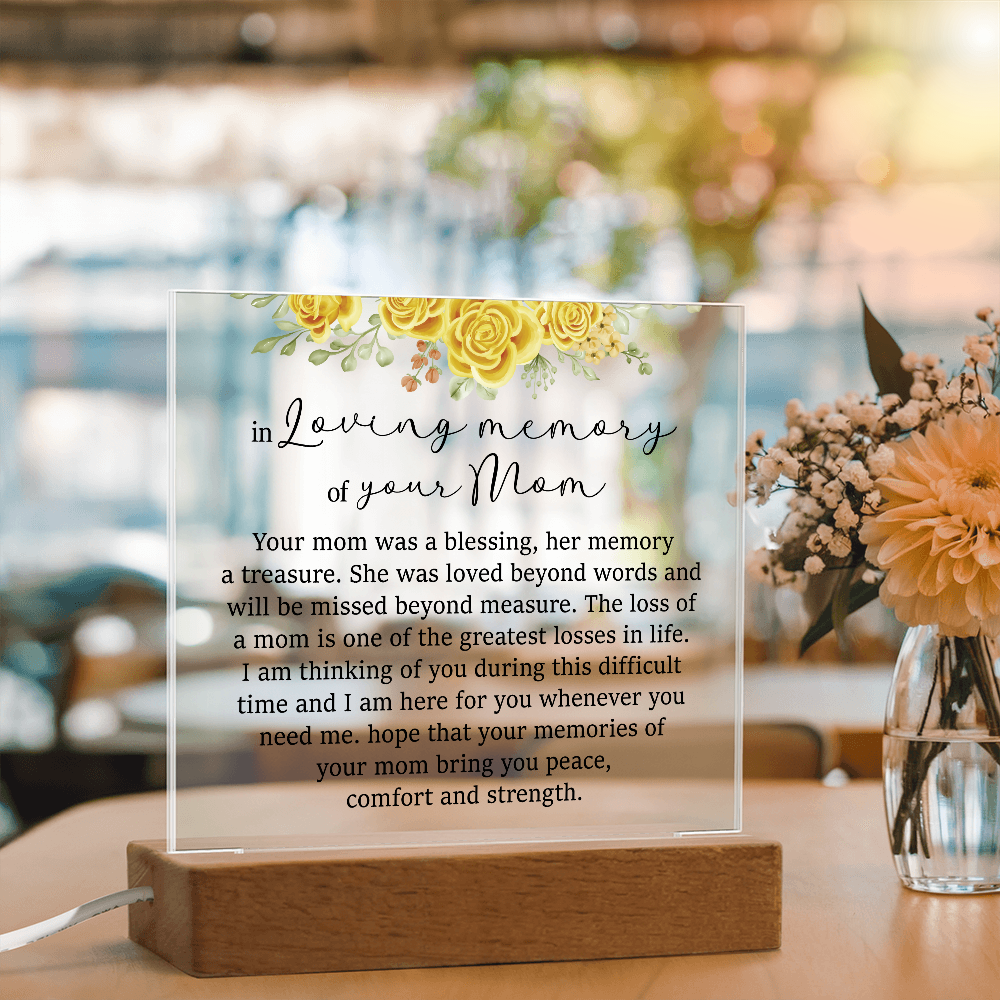 in Loving memory
of your Mom
Your mom was a blessing, her memory
a treasure. She was loved beyond words and
will be missed beyond measure. The loss of
a mom is one of the greatest losses in life.
I am thinking of you during this difficult
time and I am here for you whenever you
need me. hope that your memories of
your mom bring you peace,
comfort and strength.